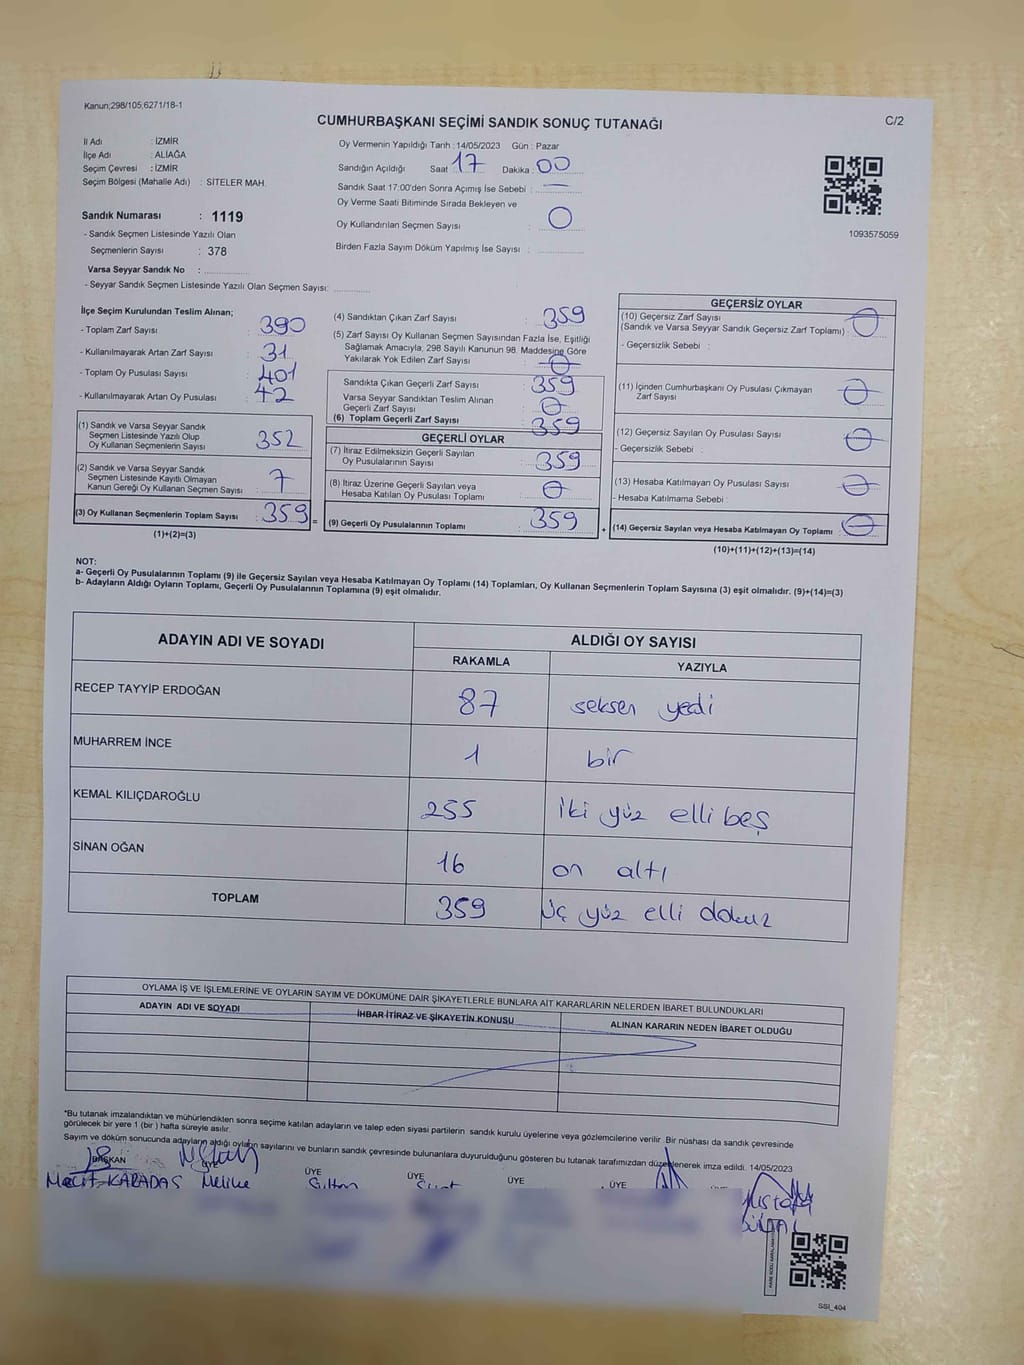 Kanun;298/105;6271/18-1
C/2
CUMHURBAŞKANI SEÇİMİ SANDIK SONUÇ TUTANAĞI
İl Adı : İZMİR
İlçe Adı : ALİAĞA
Seçim Çevresi : İZMİR
Seçim Bölgesi (Mahalle Adı) : SİTELER MAH.
Sandık Numarası : 1119
- Sandık Seçmen Listesinde Yazılı Olan
Seçmenlerin Sayısı : 378
Varsa Seyyar Sandık No :
- Seyyar Sandık Seçmen Listesinde Yazılı Olan Seçmen Sayısı:
Oy Vermenin Yapıldığı Tarih :14/05/2023 Gün : Pazar
Sandığın Açıldığı Saat 17 Dakika : 00
Sandık Saat 17:00'den Sonra Açımış İse Sebebi : —
Oy Verme Saati Bitiminde Sırada Bekleyen ve
Oy Kullandırılan Seçmen Sayısı : 0
Birden Fazla Sayım Döküm Yapılmış İse Sayısı :
1093575059
İlçe Seçim Kurulundan Teslim Alınan;
- Toplam Zarf Sayısı : 390
- Kullanılmayarak Artan Zarf Sayısı : 31
- Toplam Oy Pusulası Sayısı : 401
- Kullanılmayarak Artan Oy Pusulası : 42
(1) Sandık ve Varsa Seyyar Sandık
Seçmen Listesinde Yazılı Olup
Oy Kullanan Seçmenlerin Sayısı : 352
(2) Sandık ve Varsa Seyyar Sandık
Seçmen Listesinde Kayıtlı Olmayan
Kanun Gereği Oy Kullanan Seçmen Sayısı : 7
(3) Oy Kullanan Seçmenlerin Toplam Sayısı : 359
(1)+(2)=(3)
(4) Sandıktan Çıkan Zarf Sayısı : 359
(5) Zarf Sayısı Oy Kullanan Seçmen Sayısından Fazla İse, Eşitliği
Sağlamak Amacıyla, 298 Sayılı Kanunun 98. Maddesine Göre
Yakılarak Yok Edilen Zarf Sayısı : 0
Sandıkta Çıkan Geçerli Zarf Sayısı : 359
Varsa Seyyar Sandıktan Teslim Alınan
Geçerli Zarf Sayısı : 0
(6) Toplam Geçerli Zarf Sayısı : 359
GEÇERLİ OYLAR
(7) İtiraz Edilmeksizin Geçerli Sayılan
Oy Pusulalarının Sayısı : 359
(8) İtiraz Üzerine Geçerli Sayılan veya
Hesaba Katılan Oy Pusulası Toplamı : 0
= (9) Geçerli Oy Pusulalarının Toplamı : 359
GEÇERSİZ OYLAR
(10) Geçersiz Zarf Sayısı
(Sandık ve Varsa Seyyar Sandık Geçersiz Zarf Toplamı) : 0
- Geçersizlik Sebebi :
(11) İçinden Cumhurbaşkanı Oy Pusulası Çıkmayan
Zarf Sayısı : 0
(12) Geçersiz Sayılan Oy Pusulası Sayısı : 0
- Geçersizlik Sebebi :
(13) Hesaba Katılmayan Oy Pusulası Sayısı : 0
- Hesaba Katılmama Sebebi :
+ (14) Geçersiz Sayılan veya Hesaba Katılmayan Oy Toplamı : 0
(10)+(11)+(12)+(13)=(14)
NOT:
a- Geçerli Oy Pusulalarının Toplamı (9) ile Geçersiz Sayılan veya Hesaba Katılmayan Oy Toplamı (14) Toplamları, Oy Kullanan Seçmenlerin Toplam Sayısına (3) eşit olmalıdır. (9)+(14)=(3)
b- Adayların Aldığı Oyların Toplamı, Geçerli Oy Pusulalarının Toplamına (9) eşit olmalıdır.
ADAYIN ADI VE SOYADI ALDIĞI OY SAYISI
RAKAMLA YAZIYLA
RECEP TAYYİP ERDOĞAN 87 seksen yedi
MUHARREM İNCE 1 bir
KEMAL KILIÇDAROĞLU 255 iki yüz elli beş
SİNAN OĞAN 16 on altı
TOPLAM 359 üç yüz elli dokuz
OYLAMA İŞ VE İŞLEMLERİNE VE OYLARIN SAYIM VE DÖKÜMÜNE DAİR ŞİKAYETLERLE BUNLARA AİT KARARLARIN NELERDEN İBARET BULUNDUKLARI
ADAYIN ADI VE SOYADI İHBAR İTİRAZ VE ŞİKAYETİN KONUSU ALINAN KARARIN NEDEN İBARET OLDUĞU
*Bu tutanak imzalandıktan ve mühürlendikten sonra seçime katılan adayların ve talep eden siyasi partilerin sandık kurulu üyelerine veya gözlemcilerine verilir. Bir nüshası da sandık çevresinde
görülecek bir yere 1 (bir ) hafta süreyle asılır.
Sayım ve döküm sonucunda adayların aldığı oyların sayılarını ve bunların sandık çevresinde bulunanlara duyurulduğunu gösteren bu tutanak tarafımızdan düzenlenerek imza edildi. 14/05/2023
BAŞKAN ÜYE ÜYE ÜYE ÜYE ÜYE
KARADAŞ Melike
SSI_404